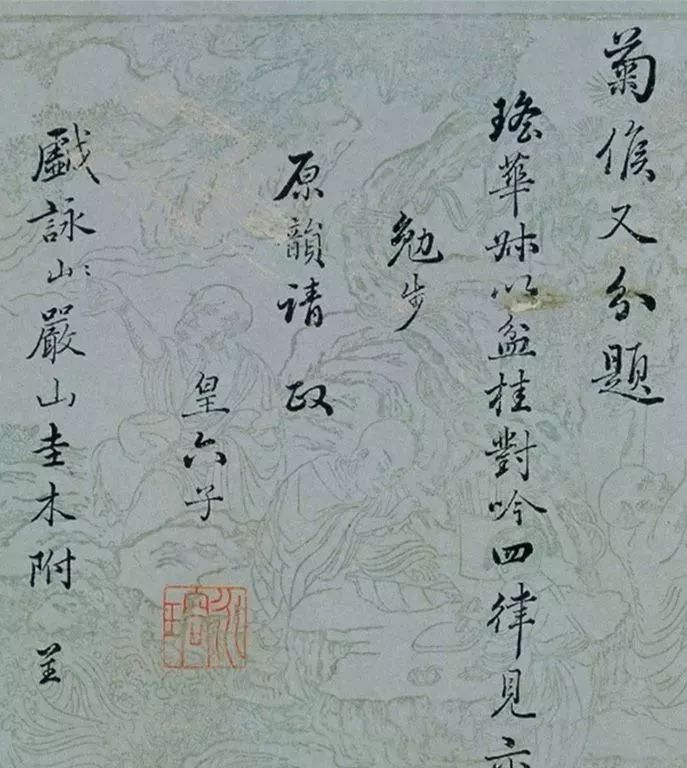 菊候又分題
瑤華妹以盆桂對吟四律見
勉步
原韻請政
皇六子
永瑢
戲詠山〻嚴山圭木附呈